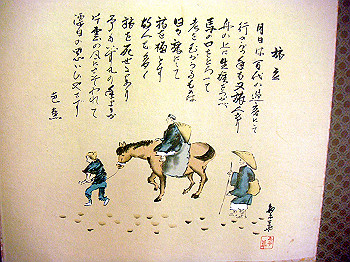 旅立
月日は百代の過客にして
行かふ年も又旅人なり
舟の上に生涯をうかべ
馬の口をとらへて
老をむかふるものは
日々旅にして
旅を栖とす
古人も多く
旅に死せるあり
予もいづれの年よりか
片雲の風にさそはれて
漂泊の思ひやまず
芭蕉